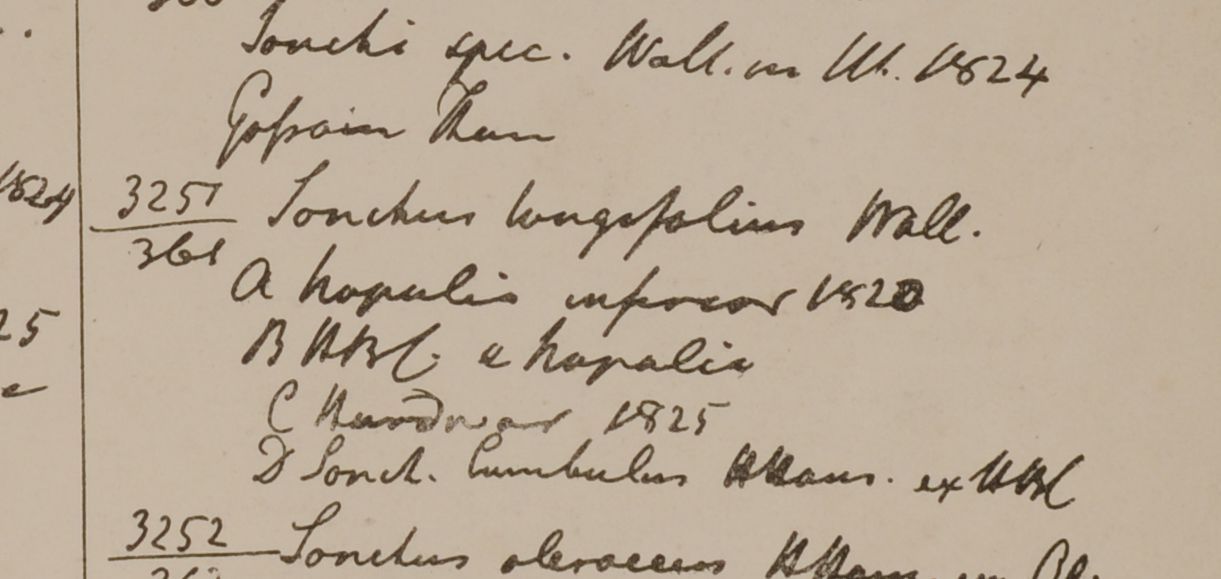 Sonchi spec. Wall. in litt. 1824
Gossain Than
1824
3251 Sonchus longifolius Wall.
361
a Napalia inferior 1820
25
B HBC. a Napalia
C Hurdwar 1825
D Sonch. Cumbulus HHam. ex HBC
3252 Sonchus oleraceus HHam. in